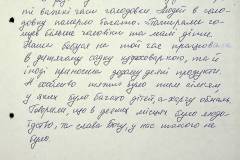 ті важкі часи голодовки. Людей в голо-
довку померло багато. Помирали го-
ловно більше чоловіки та малі діти.
Наша бабуся на той час працювала
в дитячому садку куховаркою, та й
іноді приносила додому деякі продукти.
А особливо тяжко було тим сім'ям
у яких було багато дітей, а корму обмаль.
Говорили, що в деяких місцях було людо-
їдство, та слава Богу, у нас такого не
було.